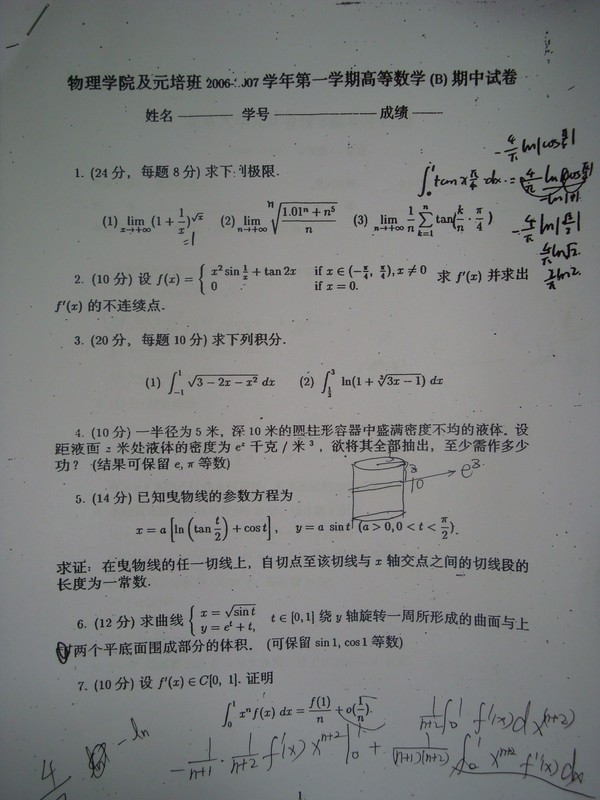 物理学院及元培班 2006-2007 学年第一学期高等数学 (B) 期中试卷
姓名 ——— 学号 ——— 成绩 ———
1. (24 分，每题 8 分) 求下列极限.
(1) lim_{x→+∞} (1 + 1/x)^{√x} (2) lim_{n→+∞} ⁿ√((1.01ⁿ + n⁵)/n) (3) lim_{n→+∞} 1/n ∑_{k=1}^{n} tan(k/n · π/4)
=1
∫₀¹ tan x π/4 dx =
2. (10 分) 设 f(x) = { x² sin 1/x + tan 2x if x ∈ (-π/4, π/4), x ≠ 0
0 if x = 0. 求 f′(x) 并求出
f′(x) 的不连续点.
3. (20 分，每题 10 分) 求下列积分.
(1) ∫_{-1}^{1} √(3 - 2x - x²) dx (2) ∫_{1/3}^{3} ln(1 + ³√(3x - 1)) dx
4. (10 分) 一半径为 5 米，深 10 米的圆柱形容器中盛满密度不均的液体. 设
距液面 z 米处液体的密度为 e^z 千克 / 米³，欲将其全部抽出，至少需作多少
功？ (结果可保留 e, π 等数)
10
5. (14 分) 已知曳物线的参数方程为
x = a [ln (tan t/2) + cos t], y = a sin t (a > 0, 0 < t < π/2).
求证：在曳物线的任一切线上，自切点至该切线与 x 轴交点之间的切线段的
长度为一常数.
6. (12 分) 求曲线 { x = √(sin t)
y = e^t + t, t ∈ [0, 1] 绕 y 轴旋转一周所形成的曲面与上
两个平底面围成部分的体积. (可保留 sin 1, cos 1 等数)
7. (10 分) 设 f′(x) ∈ C[0, 1]. 证明
∫₀¹ xⁿ f(x) dx = f(1)/n + o(1/n).
1/(n+2) ∫₀¹ f′(x) d x^(n+2)
-ln
- 1/(n+1) · 1/(n+2) f′(x) x^{n+2} |₀¹ + 1/((n+1)(n+2)) ∫₀¹ x^{n+2} f′(x) dx
1